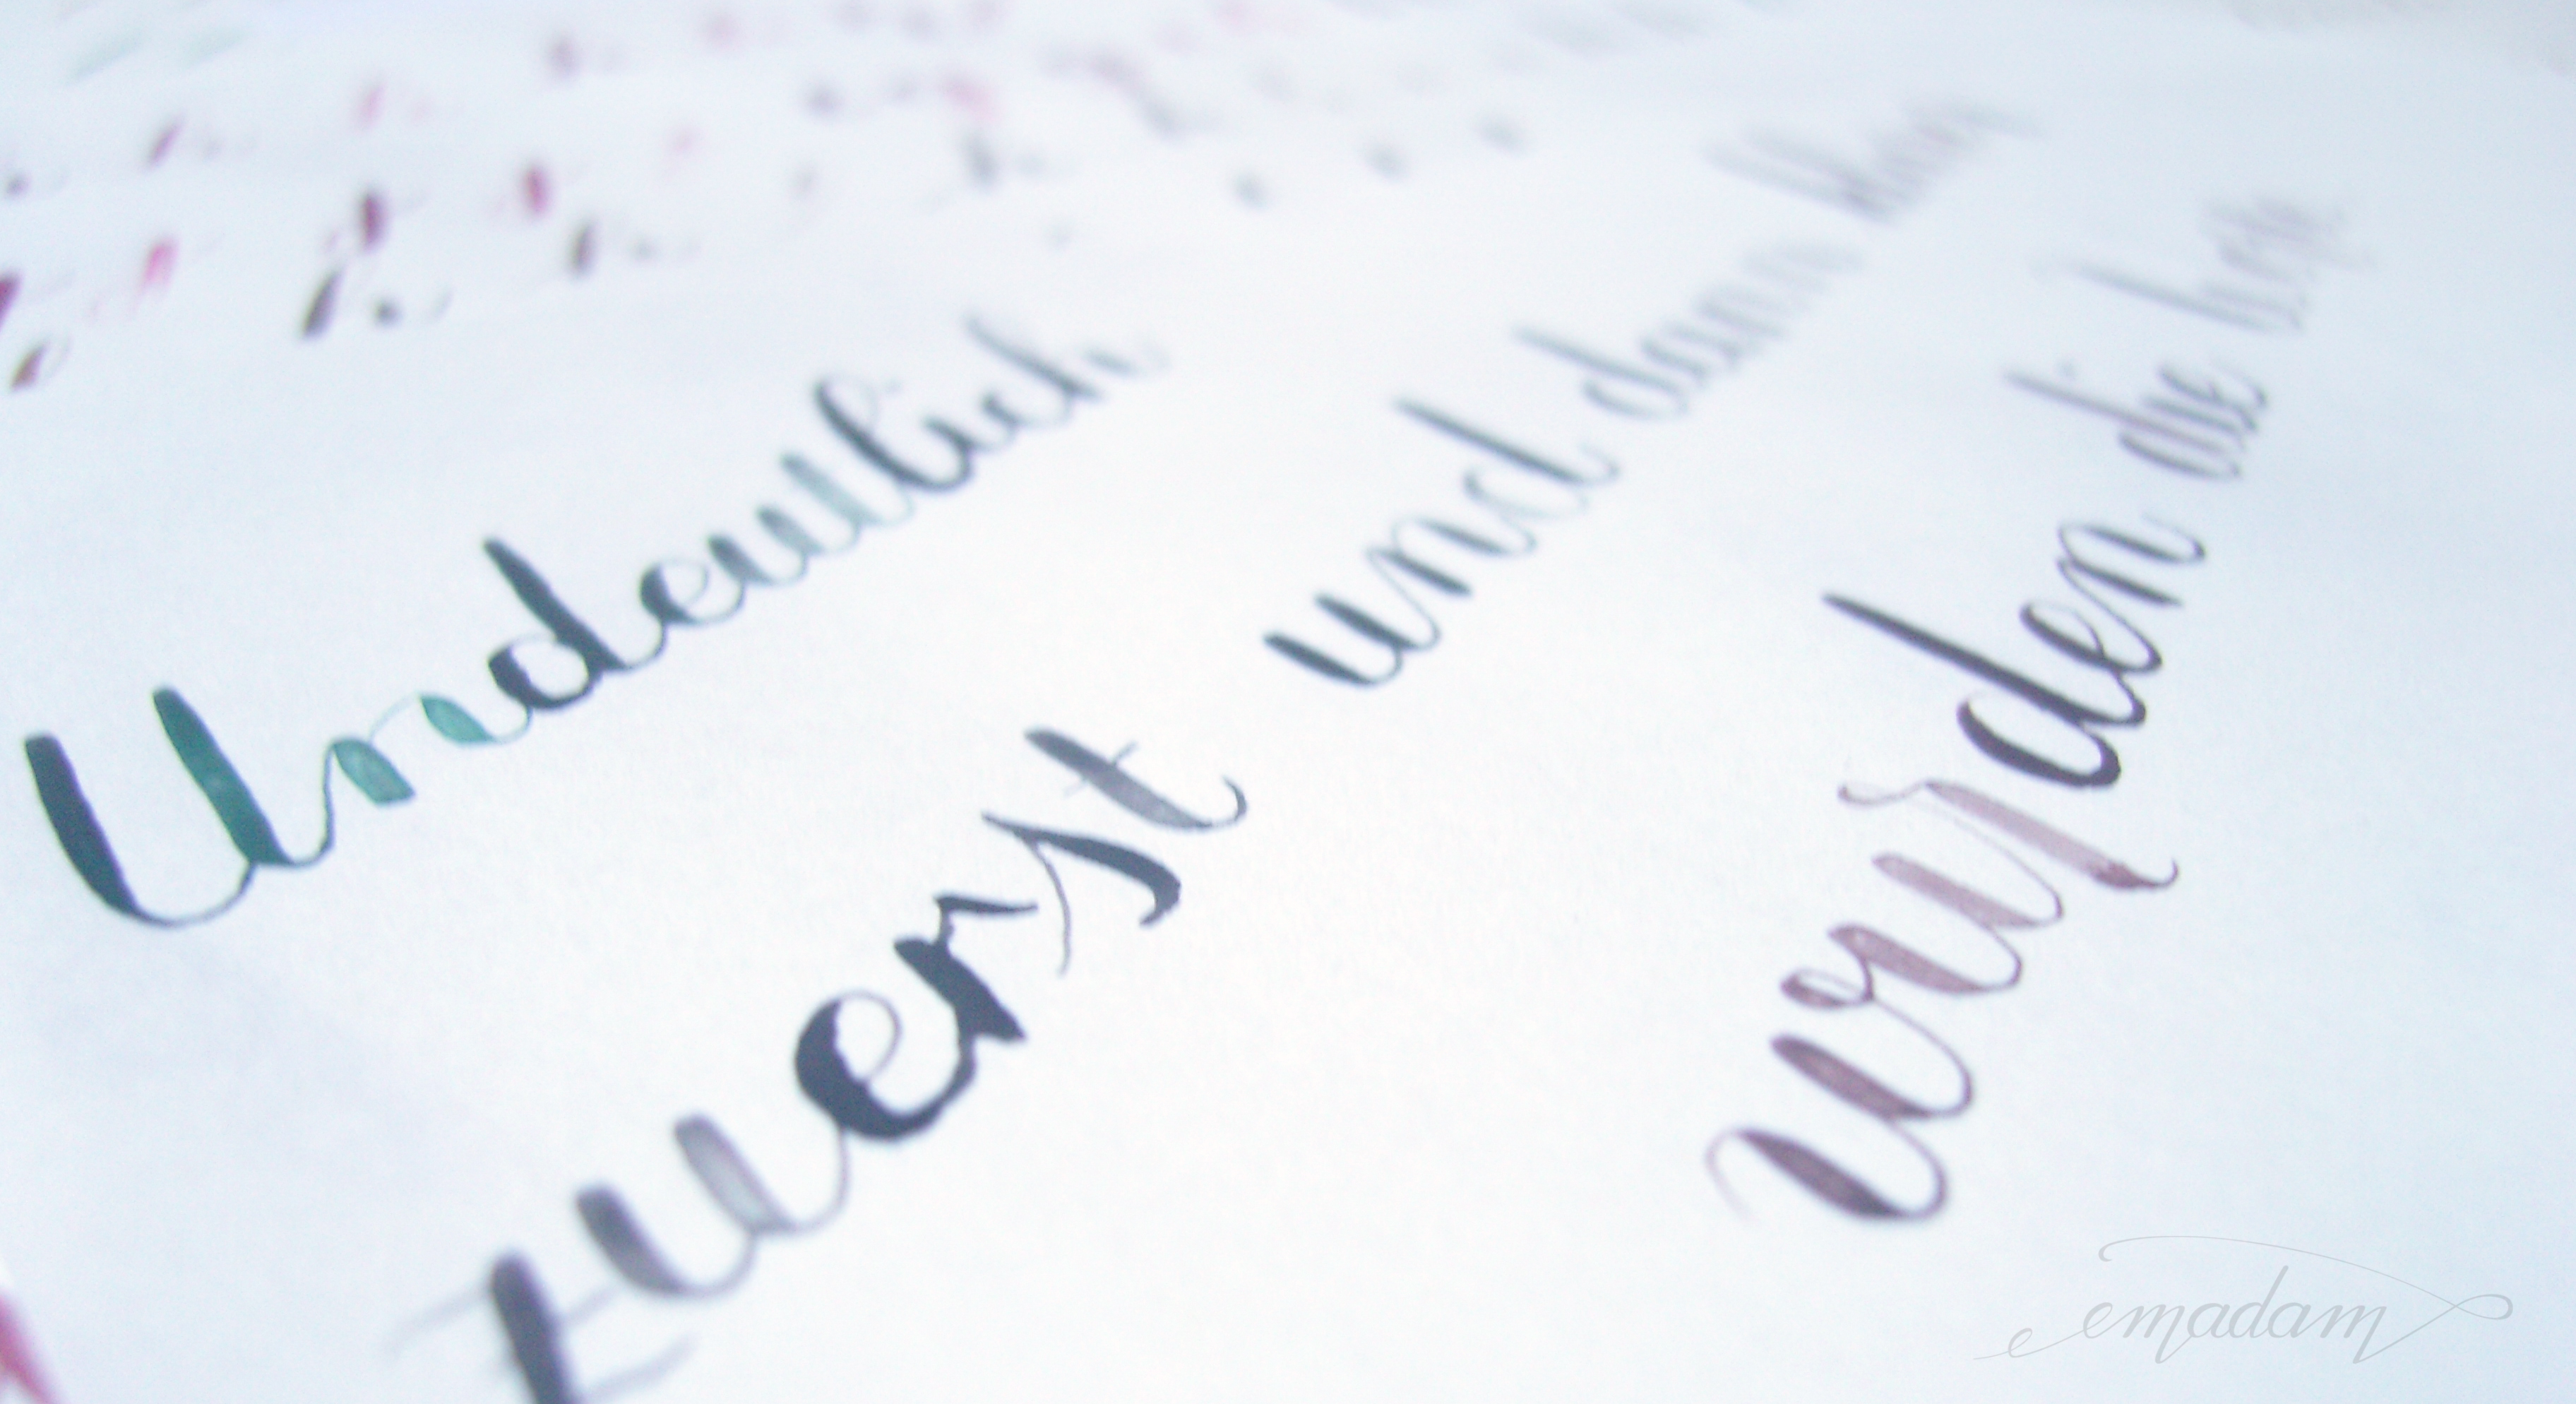 Undeutlich
zuerst und dann klar
wurden die
emadam